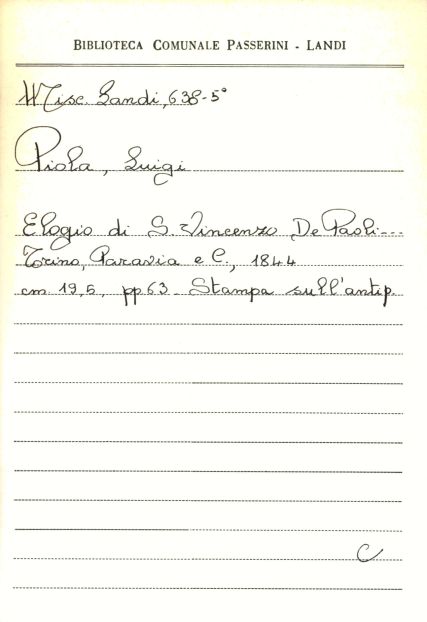 BIBLIOTECA COMUNALE PASSERINI - LANDI
Misc. Landi, 638-5°
Piola, Luigi
Elogio di S. Vincenzo De Paoli---
Torino, Paravia e C., 1844
cm 19,5, pp. 63 - Stampa sull'antip.
C